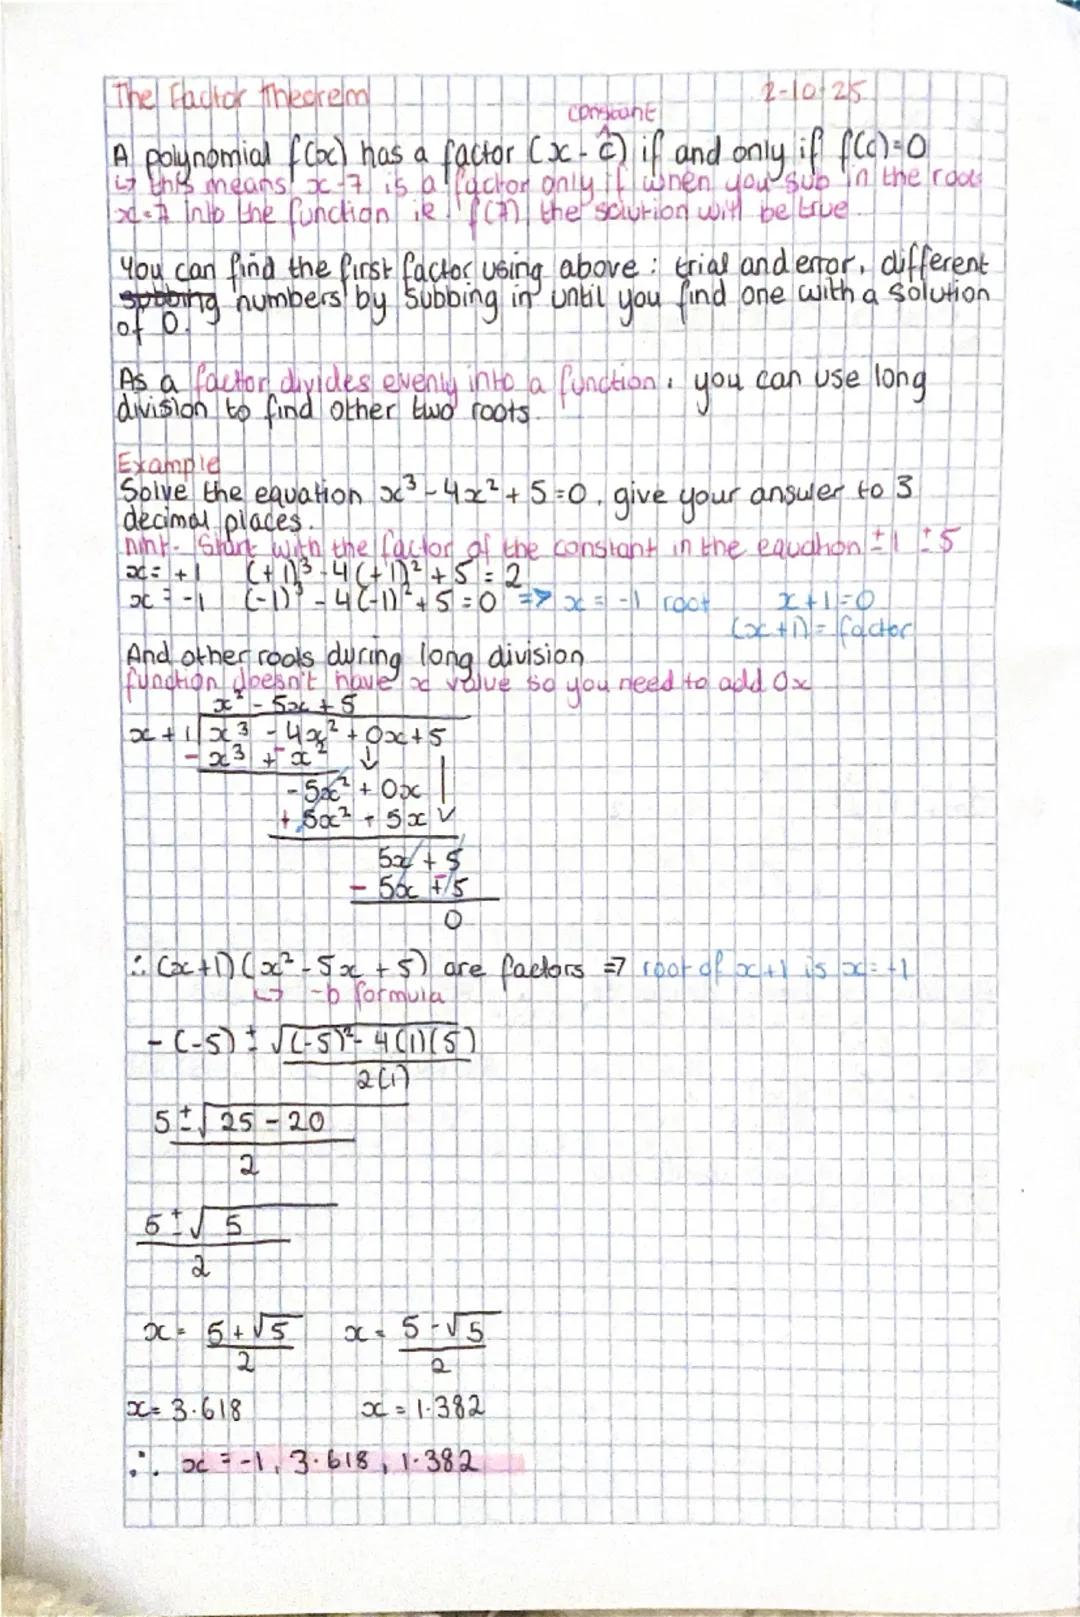 The Factor Theorem 2-10-25
constant
A polynomial f(x) has a factor (x - c) if and only if f(c)=0
↳ this means x-7 is a factor only if when you sub in the root
x=7 into the function ie f(7) the solution will be true
You can find the first factor using above : trial and error, different
subbing numbers by subbing in until you find one with a solution
of 0.
As a factor divides evenly into a function, you can use long
division to find other two roots.
Example
Solve the equation x³ - 4x² + 5 = 0, give your answer to 3
decimal places.
hint - Start with the factor of the constant in the equation ±1 ±5
x = +1 (+1)³ - 4(+1)² + 5 = 2
x = -1 (-1)³ - 4(-1)² + 5 = 0 => x = -1 root x+1=0
(x+1) = factor
And other roots during long division
function doesn't have x value so you need to add 0x
x² - 5x + 5
x + 1 √ x³ - 4x² + 0x + 5
- x³ + - x² ↓
- 5x² + 0x
+ 5x² + 5x ↓
5x + 5
- 5x + - 5
0
∴ (x+1) (x² - 5x + 5) are factors => root of x+1 is x = -1
↳ -b formula
- (-5) ± √(-5)² - 4(1)(5)
2(1)
5 ± √25 - 20
2
5 ± √5
2
x = 5 + √5 x = 5 - √5
2 2
x = 3.618 x = 1.382
∴ x = -1, 3.618, 1.382